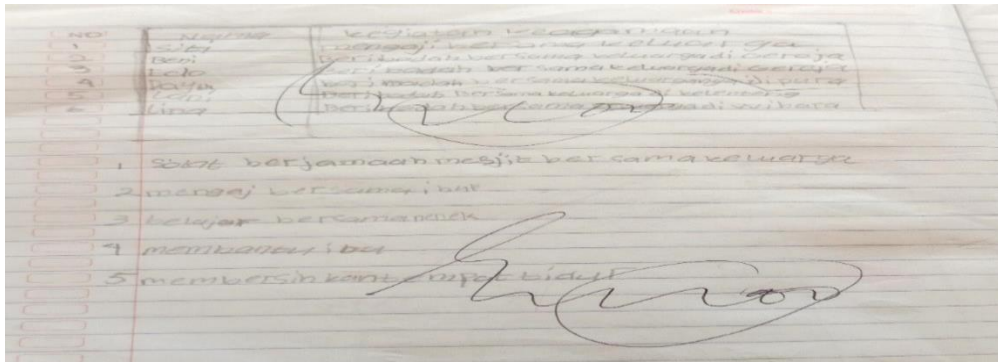 NO Nama kegiatan keagamaan
1 Siti mengaji bersama keluarga
2 Beni beribadah bersama keluarga di Gereja
3 Lolo beribadah bersama keluarga di Gereja
4 beribadah bersama keluarga di Pura
5 beribadah bersama keluarga di kelenteng
6 Ling beribadah bersama di wihara
1 berjamaah mesjit bersama keluarga
2 mengaj bersama ibuk
3 belajar bersama nenek
4 membantu ibu
5 membersihkan tempat bidur
100
100